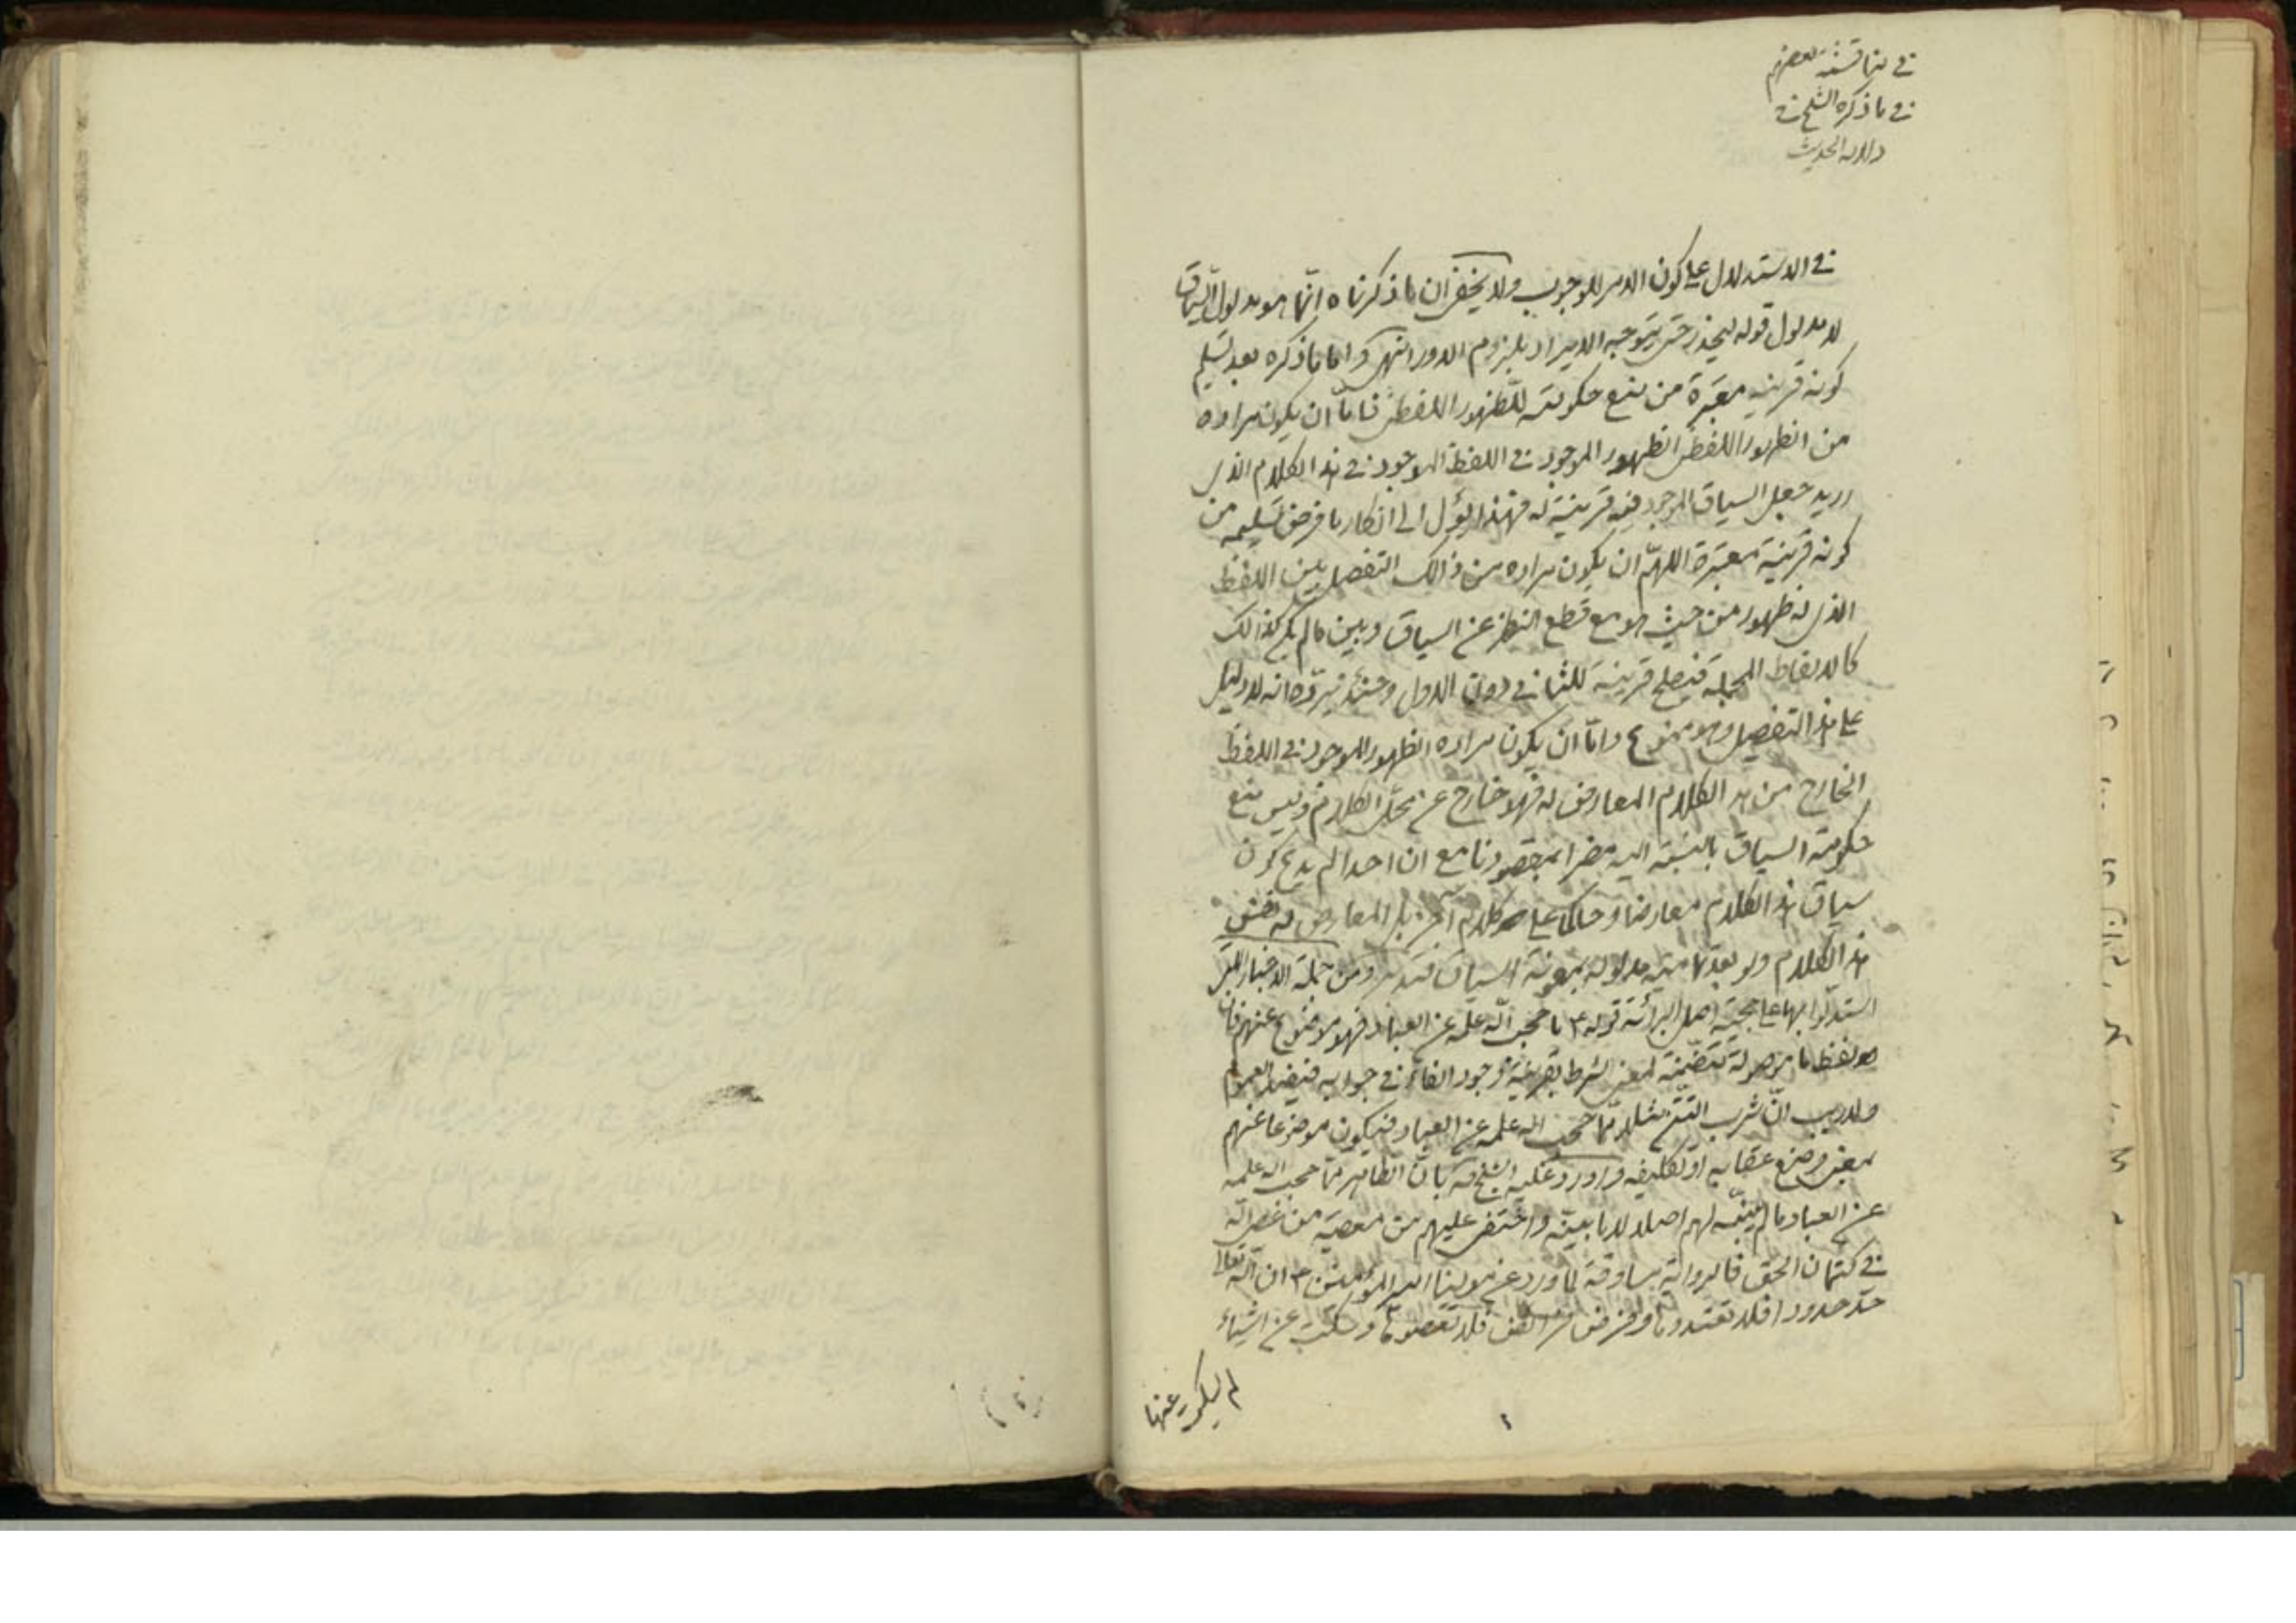 في مناقشة بعضهم
في ما ذكره الشيخ في
دلالة الحديث
في الاستدلال على كون الامر للوجوب ولا يخفى ان ما ذكرناه انّما هو مدلول السياق
لا مدلول قوله ليحذر حتى يتوجه الايراد بلزوم الدور انتهى واما ما ذكره بعد تسليم
كونه قرينة معتبرة من منع حكومته للظهور اللفظى فامّا ان يكون مراده
من الظهور اللفظى الظهور الموجود في اللفظ الموجود في هذا الكلام الذى
اريد جعل السياق الموجود فيه قرينة له فهذا يؤل الى انكار ما فرض تسليمه من
كونه قرينة معتبرة اللهمّ ان يكون مراده من ذالك التفصيل بين اللفظ
الذى له ظهور من حيث هو مع قطع النظر عن السياق وبين ما لم يكن كذالك
كالالفاظ المجملة فيصلح قرينة للثانى دون الاول وحينئذ نيردّه انه لا دليل
على هذا التفصيل وهو ممنوع وامّا ان يكون مراده الظهور الموجود في اللفظ
الخارج من هذا الكلام المعارض له فهو خارج عن محلّ الكلام وليس منع
حكومة السياق بالنسبة اليه مضرا بمقصودنا مع ان احدا لم يدع كون
سياق هذا الكلام معارضا وحاكما على كلام آخر بل المعارض له نفس
هذا الكلام ولو بعد تماميّة مدلوله بمعونة السياق فتدبر ومن جملة الاخبار التى
استدلّوا بها على حجية اصل البرائة قوله ع ما حجب اللّه علمه عن العباد فهو موضوع عنهم فان
لفظ ما موصولة متضمّنة لمعنى الشرط بقرينة وجود الفاء في جوابه فيفيد العموم
ولا ريب انّ شرب التتن مثلا ممّا حجب اللّه علمه عن العباد فيكون موضوعا عنهم
بمعنى وضع عقابه او تكليفه واورد عليه الشيخ قه بانّ الظاهر ممّا حجب اللّه علمه
عن العباد ما لم يبيّنه لهم اصلا لا ما بيّنه واختفى عليهم من معصية من عصى اللّه
في كتمان الحق فالرواية مساوقة لما ورد عن مولينا امير المؤمنين ع ان اللّه تعالى
حدّ حدودا فلا تعتدوها وفرض فرائض فلا تعصوها وسكت عن اشياء
لم يسكت عنها